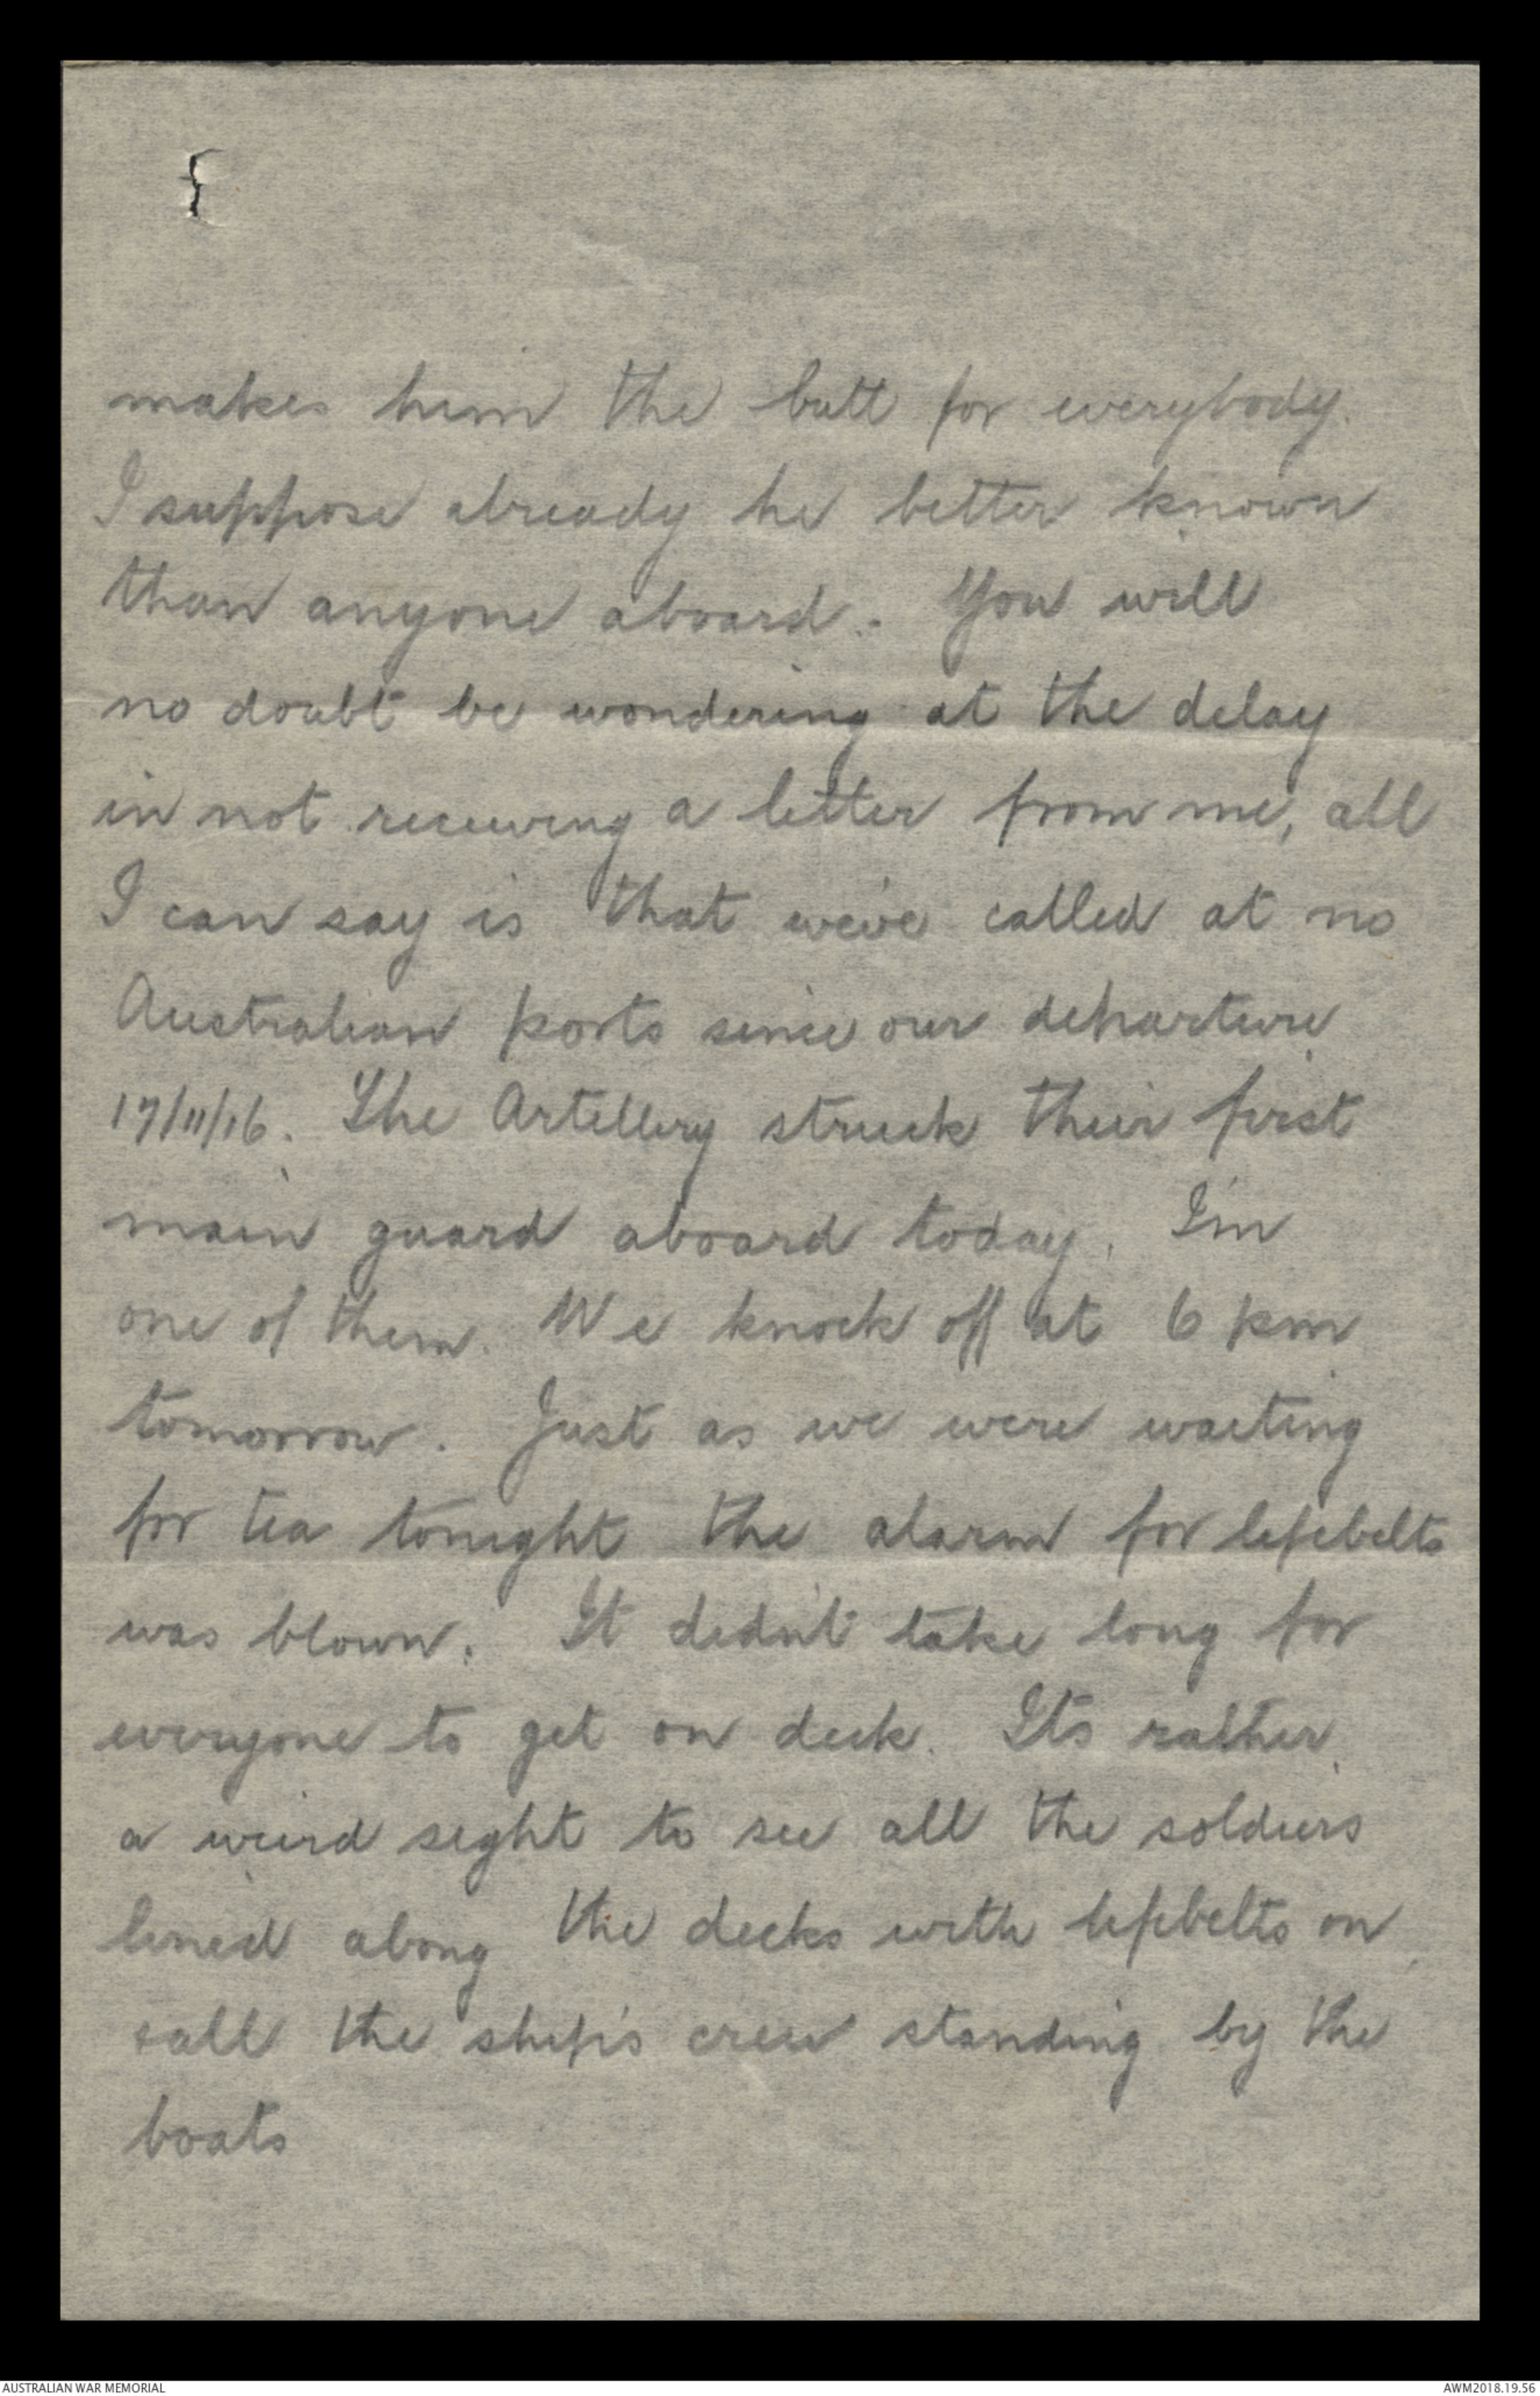 makes him the butt for everybody.
I suppose already he better known
than anyone aboard.- You will
no doubt be wondering at the delay
in not receiving a letter from me, all
I can say is that we've called at no
Australian ports since our departure
17/11/16. The Artillery struck their first
main guard aboard today. I'm
one of them. We knock off at 6 pm
tomorrow. Just as we were waiting
for tea tonight the alarm for lifebelts
was blown. It didn't take long for
everyone to get on deck. Its rather
a weird sight to see all the soldiers
lined along the decks with lifebelts on
& all the ship's crew standing by the
boats
AUSTRALIAN WAR MEMORIAL
AWM2018.19.56